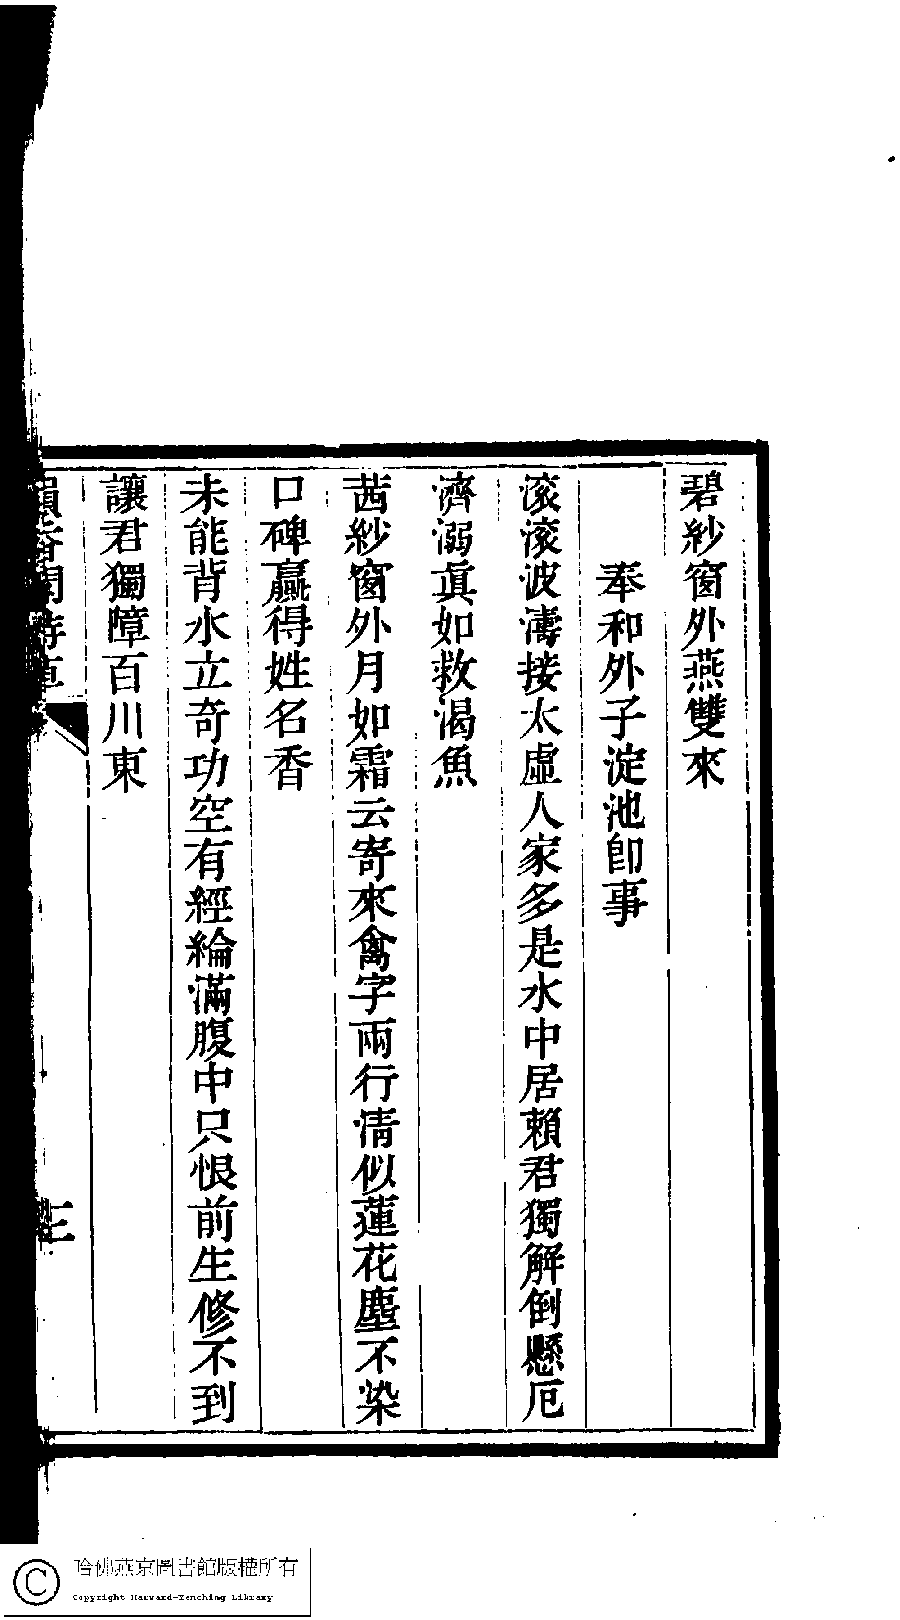 碧紗窗外燕雙來
奉和外子淀池卽事
滚滚波濤接太虛人家多是水中居賴君獨解倒懸厄
濟溺眞如救渴魚
茜紗窗外月如霜云寄來禽字兩行淸似蓮花塵不染
口碑贏得姓名香
未能背水立奇功空有經綸滿腹中只恨前生修不到
讓君獨障百川東
三
哈佛燕京圖書館版權所有
Copyright Harvard-Yenching Library